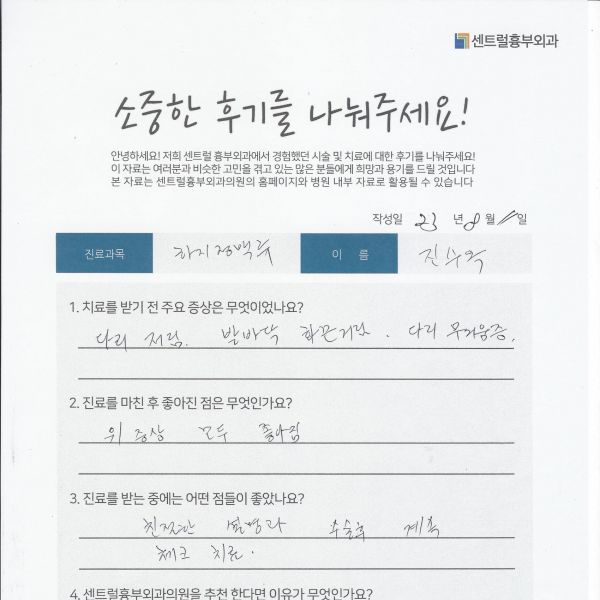 센트럴흉부외과
소중한 후기를 나눠주세요!
안녕하세요! 저희 센트럴 흉부외과에서 경험했던 시술 및 치료에 대한 후기를 나눠주세요!
이 자료는 여러분과 비슷한 고민을 겪고 있는 많은 분들에게 희망과 용기를 드릴 것입니다
본 자료는 센트럴흉부외과의원의 홈페이지와 병원 내부 자료로 활용될 수 있습니다
작성일 23 년 8 월 일
진료과목 하지정맥류 이 름 진수억
1. 치료를 받기 전 주요 증상은 무엇이었나요?
다리 저림. 발바닥 화끈거림. 다리 무거움증.
2. 진료를 마친 후 좋아진 점은 무엇인가요?
위 증상 모두 좋아짐
3. 진료를 받는 중에는 어떤 점들이 좋았나요?
친절한 설명과 수술후 계속
체크 치료.
4. 센트럴흉부외과의원을 추천 한다면 이유가 무엇인가요?